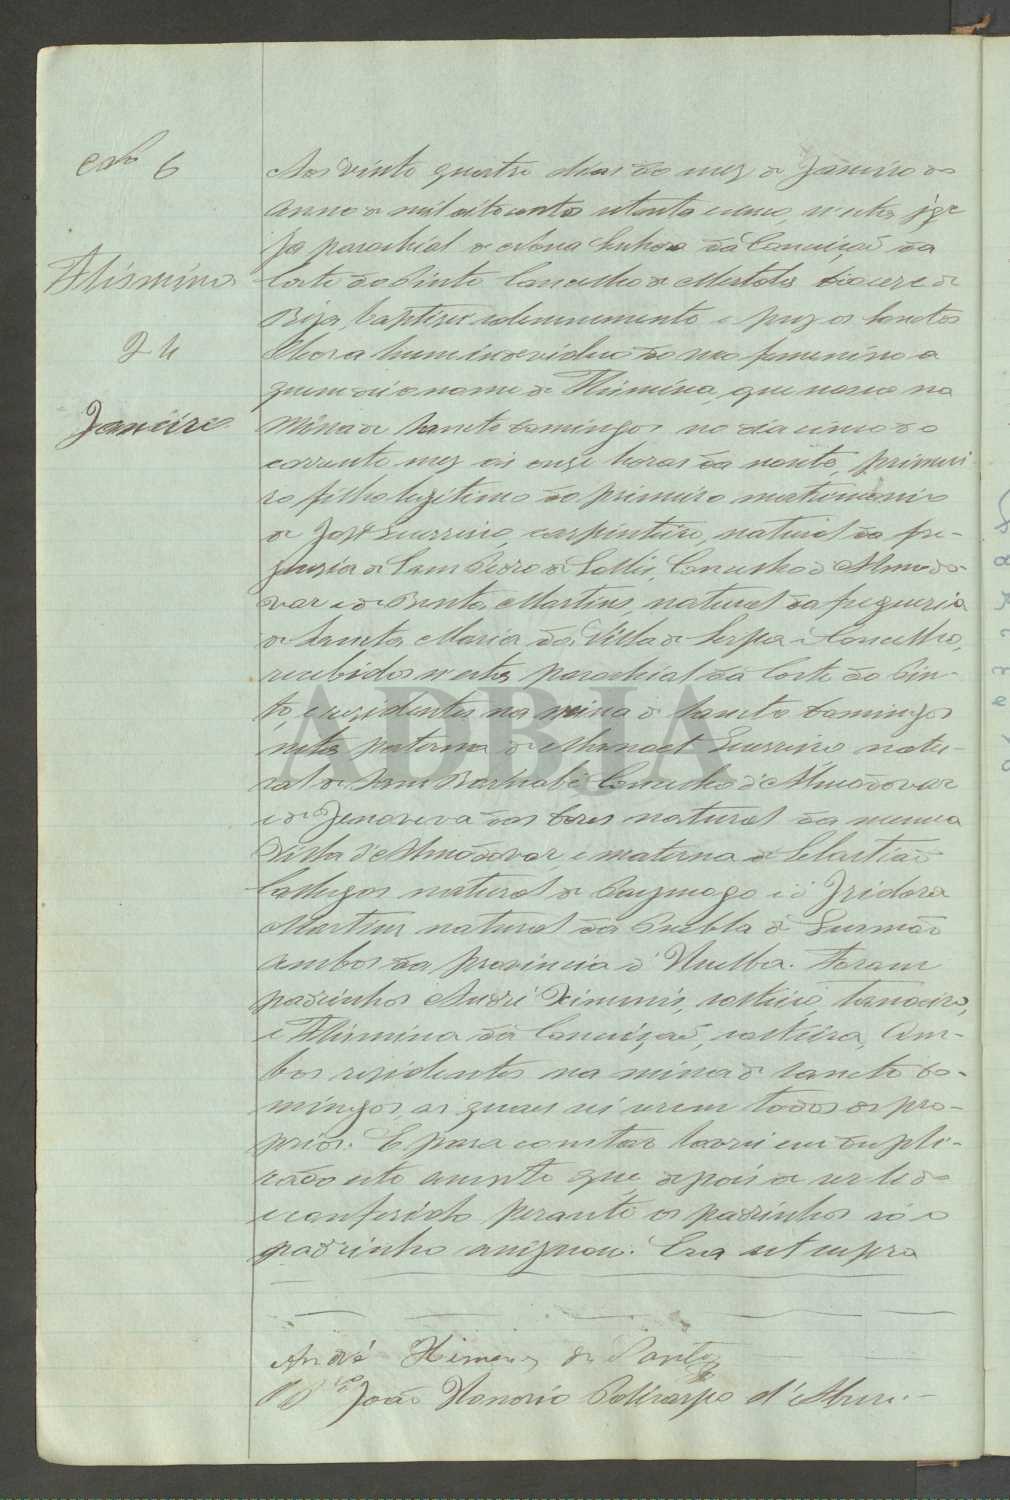 Nº 6
Filismina
24
Janeiro
Aos vinte quatro dias do mez de Janeiro do
anno de mil oito centos oitenta e cinco, n'esta Igre
ja parochial de Nossa Senhora da Conceição da
Corte do Pinto Concelho de Mertola Diocese de
Beja, baptisei solemnemente e puz os Sanctos
Oleos a hum individuo do sexo feminino a
quem dei o nome de Filismina, que nasceu na
Mina de Sancto Domingos no dia cinco do
corrente mez ás onze horas da noute, primei-
ro filho legitimo do primeiro matrimonio
de José Guerreiro, carpinteiro, natural da fre-
guezia de Sam Pedro de Sollis, Concelho d'Almodo-
var e de Benta Martins, natural da freguezia
de Sancta Maria da Villa de Serpa e Concelho,
recebidos n'esta parochial da Corte do Pin-
to, e residentes na mina de Sancto Domingos
neta paterna de Manoel Guerreiro natu-
ral de Sam Barnabé Concelho d'Almodovar
e de Jenoveva das Dores natural da mesma
Villa d'Almodovar, e materna de Sebastião
Callegos natural de Paymogo e d' Izidora
Martins natural da Puebla de Gusmão
ambos da provincia d' Huelba. Foram
padrinhos André Ximenis, solteiro, tanoeiro,
e Filismina da Conceição, solteira, Am-
bos residentes na mina de Sancto Do-
mingos, os quaes sei serem todos os pro-
prios. E para constar lavrei em dupli-
cado este assento que depois de ser lido
e conferido perante os padrinhos só o
padrinho assignou. Era ut supra
André Himenes de Santos
João Honorio Policarpo d'Abreu
ADBJA